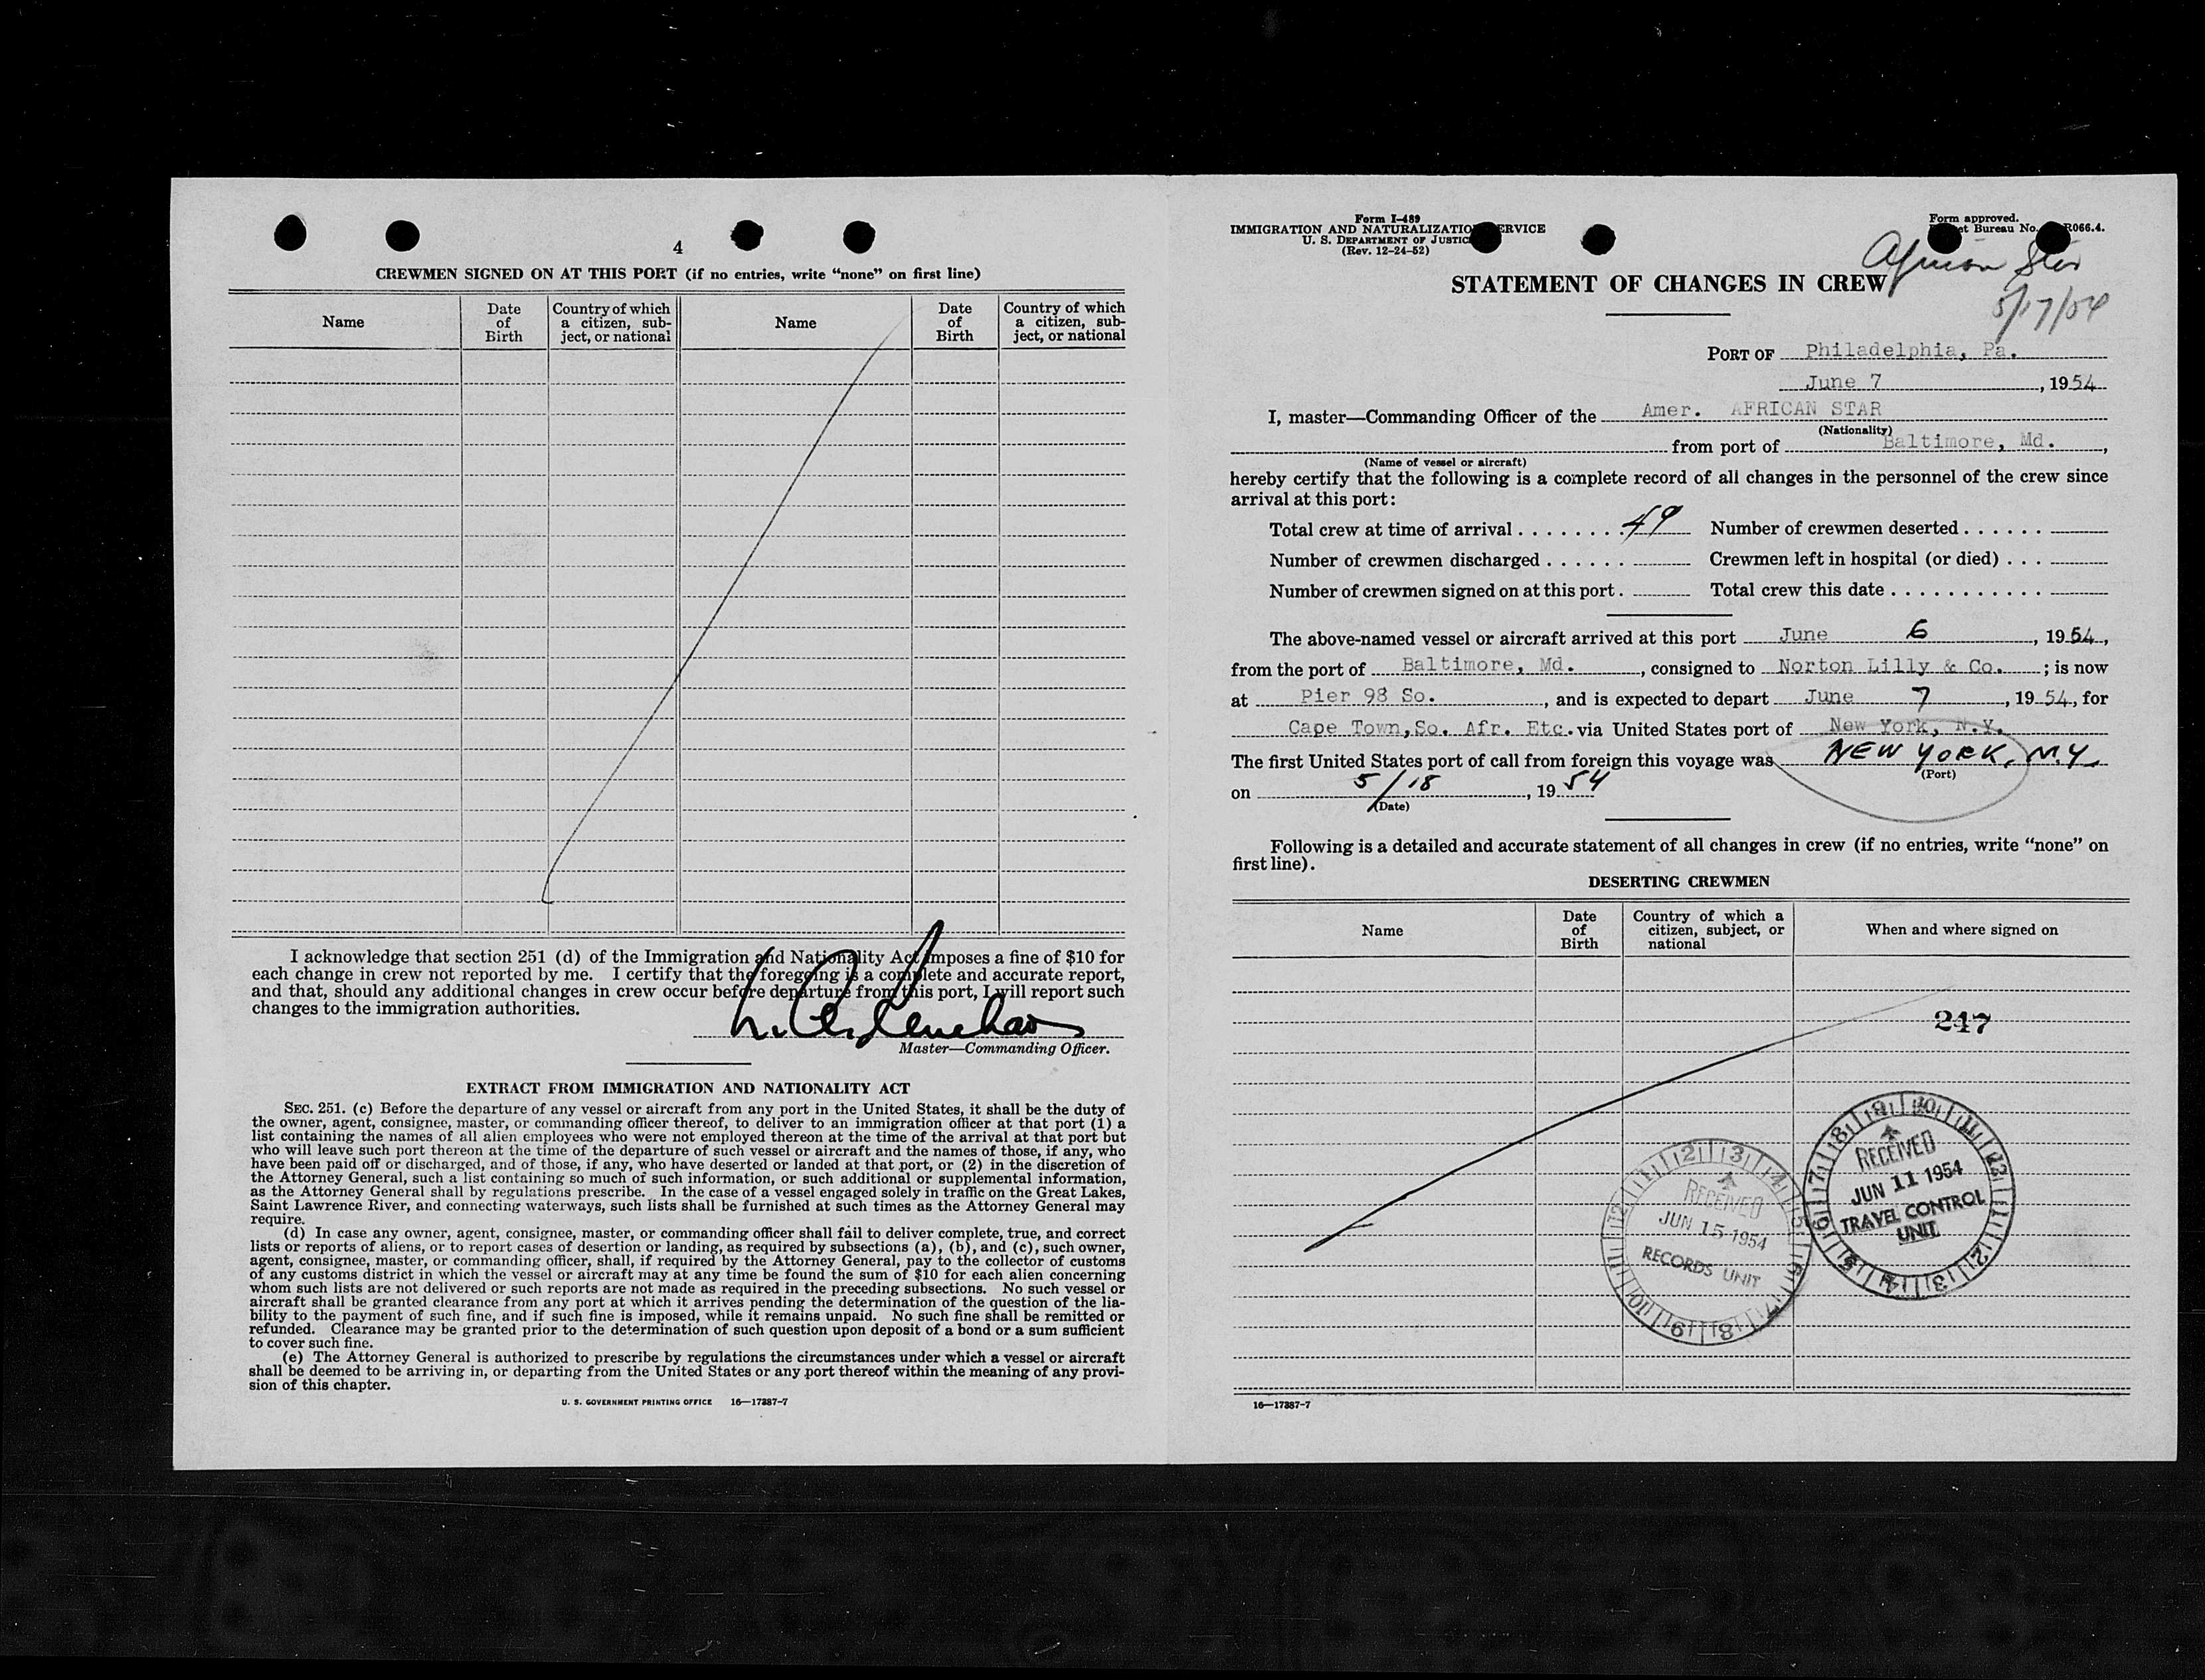 4
CREWMEN SIGNED ON AT THIS PORT (if no entries, write "none" on first line)
Name
Date of Birth
Country of which a citizen, subject, or national
Name
Date of Birth
Country of which a citizen, subject, or national
I acknowledge that section 251 (d) of the Immigration and Nationality Act imposes a fine of $10 for
each change in crew not reported by me. I certify that the foregoing is a complete and accurate report,
and that, should any additional changes in crew occur before departure from this port, I will report such
changes to the immigration authorities.
Master—Commanding Officer.
EXTRACT FROM IMMIGRATION AND NATIONALITY ACT
SEC. 251. (c) Before the departure of any vessel or aircraft from any port in the United States, it shall be the duty of
the owner, agent, consignee, master, or commanding officer thereof, to deliver to an immigration officer at that port (1) a
list containing the names of all alien employees who were not employed thereon at the time of the arrival at that port but
who will leave such port thereon at the time of the departure of such vessel or aircraft and the names of those, if any, who
have been paid off or discharged, and of those, if any, who have deserted or landed at that port, or (2) in the discretion of
the Attorney General, such a list containing so much of such information, or such additional or supplemental information,
as the Attorney General shall by regulations prescribe. In the case of a vessel engaged solely in traffic on the Great Lakes,
Saint Lawrence River, and connecting waterways, such lists shall be furnished at such times as the Attorney General may
require.
(d) In case any owner, agent, consignee, master, or commanding officer shall fail to deliver complete, true, and correct
lists or reports of aliens, or to report cases of desertion or landing, as required by subsections (a), (b), and (c), such owner,
agent, consignee, master, or commanding officer, shall, if required by the Attorney General, pay to the collector of customs
of any customs district in which the vessel or aircraft may at any time be found the sum of $10 for each alien concerning
whom such lists are not delivered or such reports are not made as required in the preceding subsections. No such vessel or
aircraft shall be granted clearance from any port at which it arrives pending the determination of the question of the lia-
bility to the payment of such fine, and if such fine is imposed, while it remains unpaid. No such fine shall be remitted or
refunded. Clearance may be granted prior to the determination of such question upon deposit of a bond or a sum sufficient
to cover such fine.
(e) The Attorney General is authorized to prescribe by regulations the circumstances under which a vessel or aircraft
shall be deemed to be arriving in, or departing from the United States or any port thereof within the meaning of any provi-
sion of this chapter.
U. S. GOVERNMENT PRINTING OFFICE 16—17387-7
Form I-489
IMMIGRATION AND NATURALIZATION SERVICE
U. S. DEPARTMENT OF JUSTICE
(Rev. 12-24-52)
Form approved.
Bureau No. R066.4.
African Star
5/17/54
STATEMENT OF CHANGES IN CREW
PORT OF Philadelphia, Pa.
June 7, 1954
I, master—Commanding Officer of the Amer. AFRICAN STAR
(Nationality)
from port of Baltimore, Md.,
(Name of vessel or aircraft)
hereby certify that the following is a complete record of all changes in the personnel of the crew since
arrival at this port:
Total crew at time of arrival . . . . . . . . 49 Number of crewmen deserted . . . . . .
Number of crewmen discharged . . . . . . Crewmen left in hospital (or died) . . .
Number of crewmen signed on at this port . Total crew this date . . . . . . . . . . .
The above-named vessel or aircraft arrived at this port June 6, 1954,
from the port of Baltimore, Md., consigned to Norton Lilly & Co.; is now
at Pier 98 So., and is expected to depart June 7, 1954, for
Cape Town, So. Afr. Etc. via United States port of New York, N.Y.
The first United States port of call from foreign this voyage was NEW YORK, N.Y.
(Port)
on 5/18, 1954
(Date)
Following is a detailed and accurate statement of all changes in crew (if no entries, write "none" on
first line).
DESERTING CREWMEN
Name
Date of Birth
Country of which a citizen, subject, or national
When and where signed on
247
RECEIVED
JUN 15 1954
RECORDS UNIT
RECEIVED
JUN 11 1954
TRAVEL CONTROL
UNIT
16—17387-7